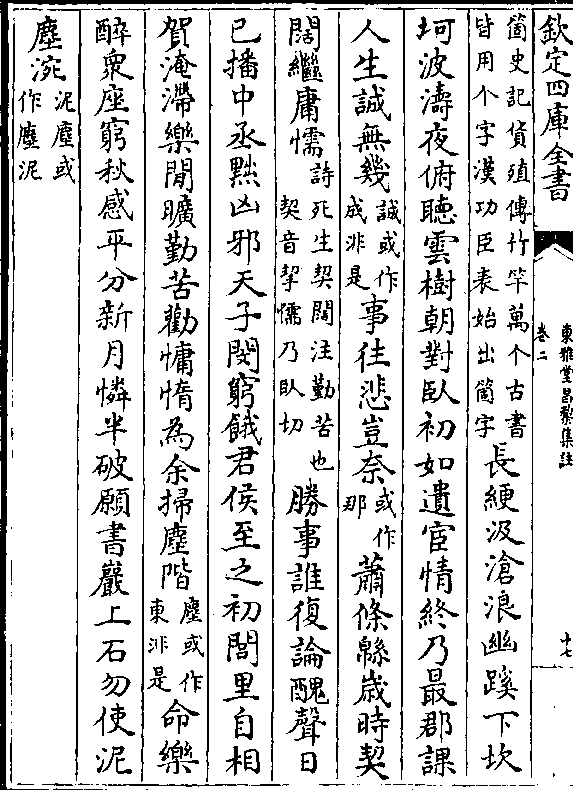 欽定四庫全書
東雅堂昌黎集註
卷二
十七
箇史記貨殖傳竹竿萬个古書
皆用个字漢功臣表始出箇字
長綆汲滄浪幽蹊下坎
坷波濤夜俯聽雲樹朝對臥初如遺宦情終乃最郡課
人生誠無幾
誠或作
成非是
事往悲豈奈
或作
那
蕭條緜歲時契
闊繼庸懦
詩死生契闊注勤苦也
契音挈懦乃臥切
勝事誰復論醜聲日
已播中丞黜凶邪天子閔窮餓君侯至之初閭里自相
賀淹滯樂閒曠勤苦勸慵惰為余掃塵階
塵或作
東非是
命樂
醉衆座窮秋感平分新月憐半破願書巖上石勿使泥
塵涴
泥塵或
作塵泥